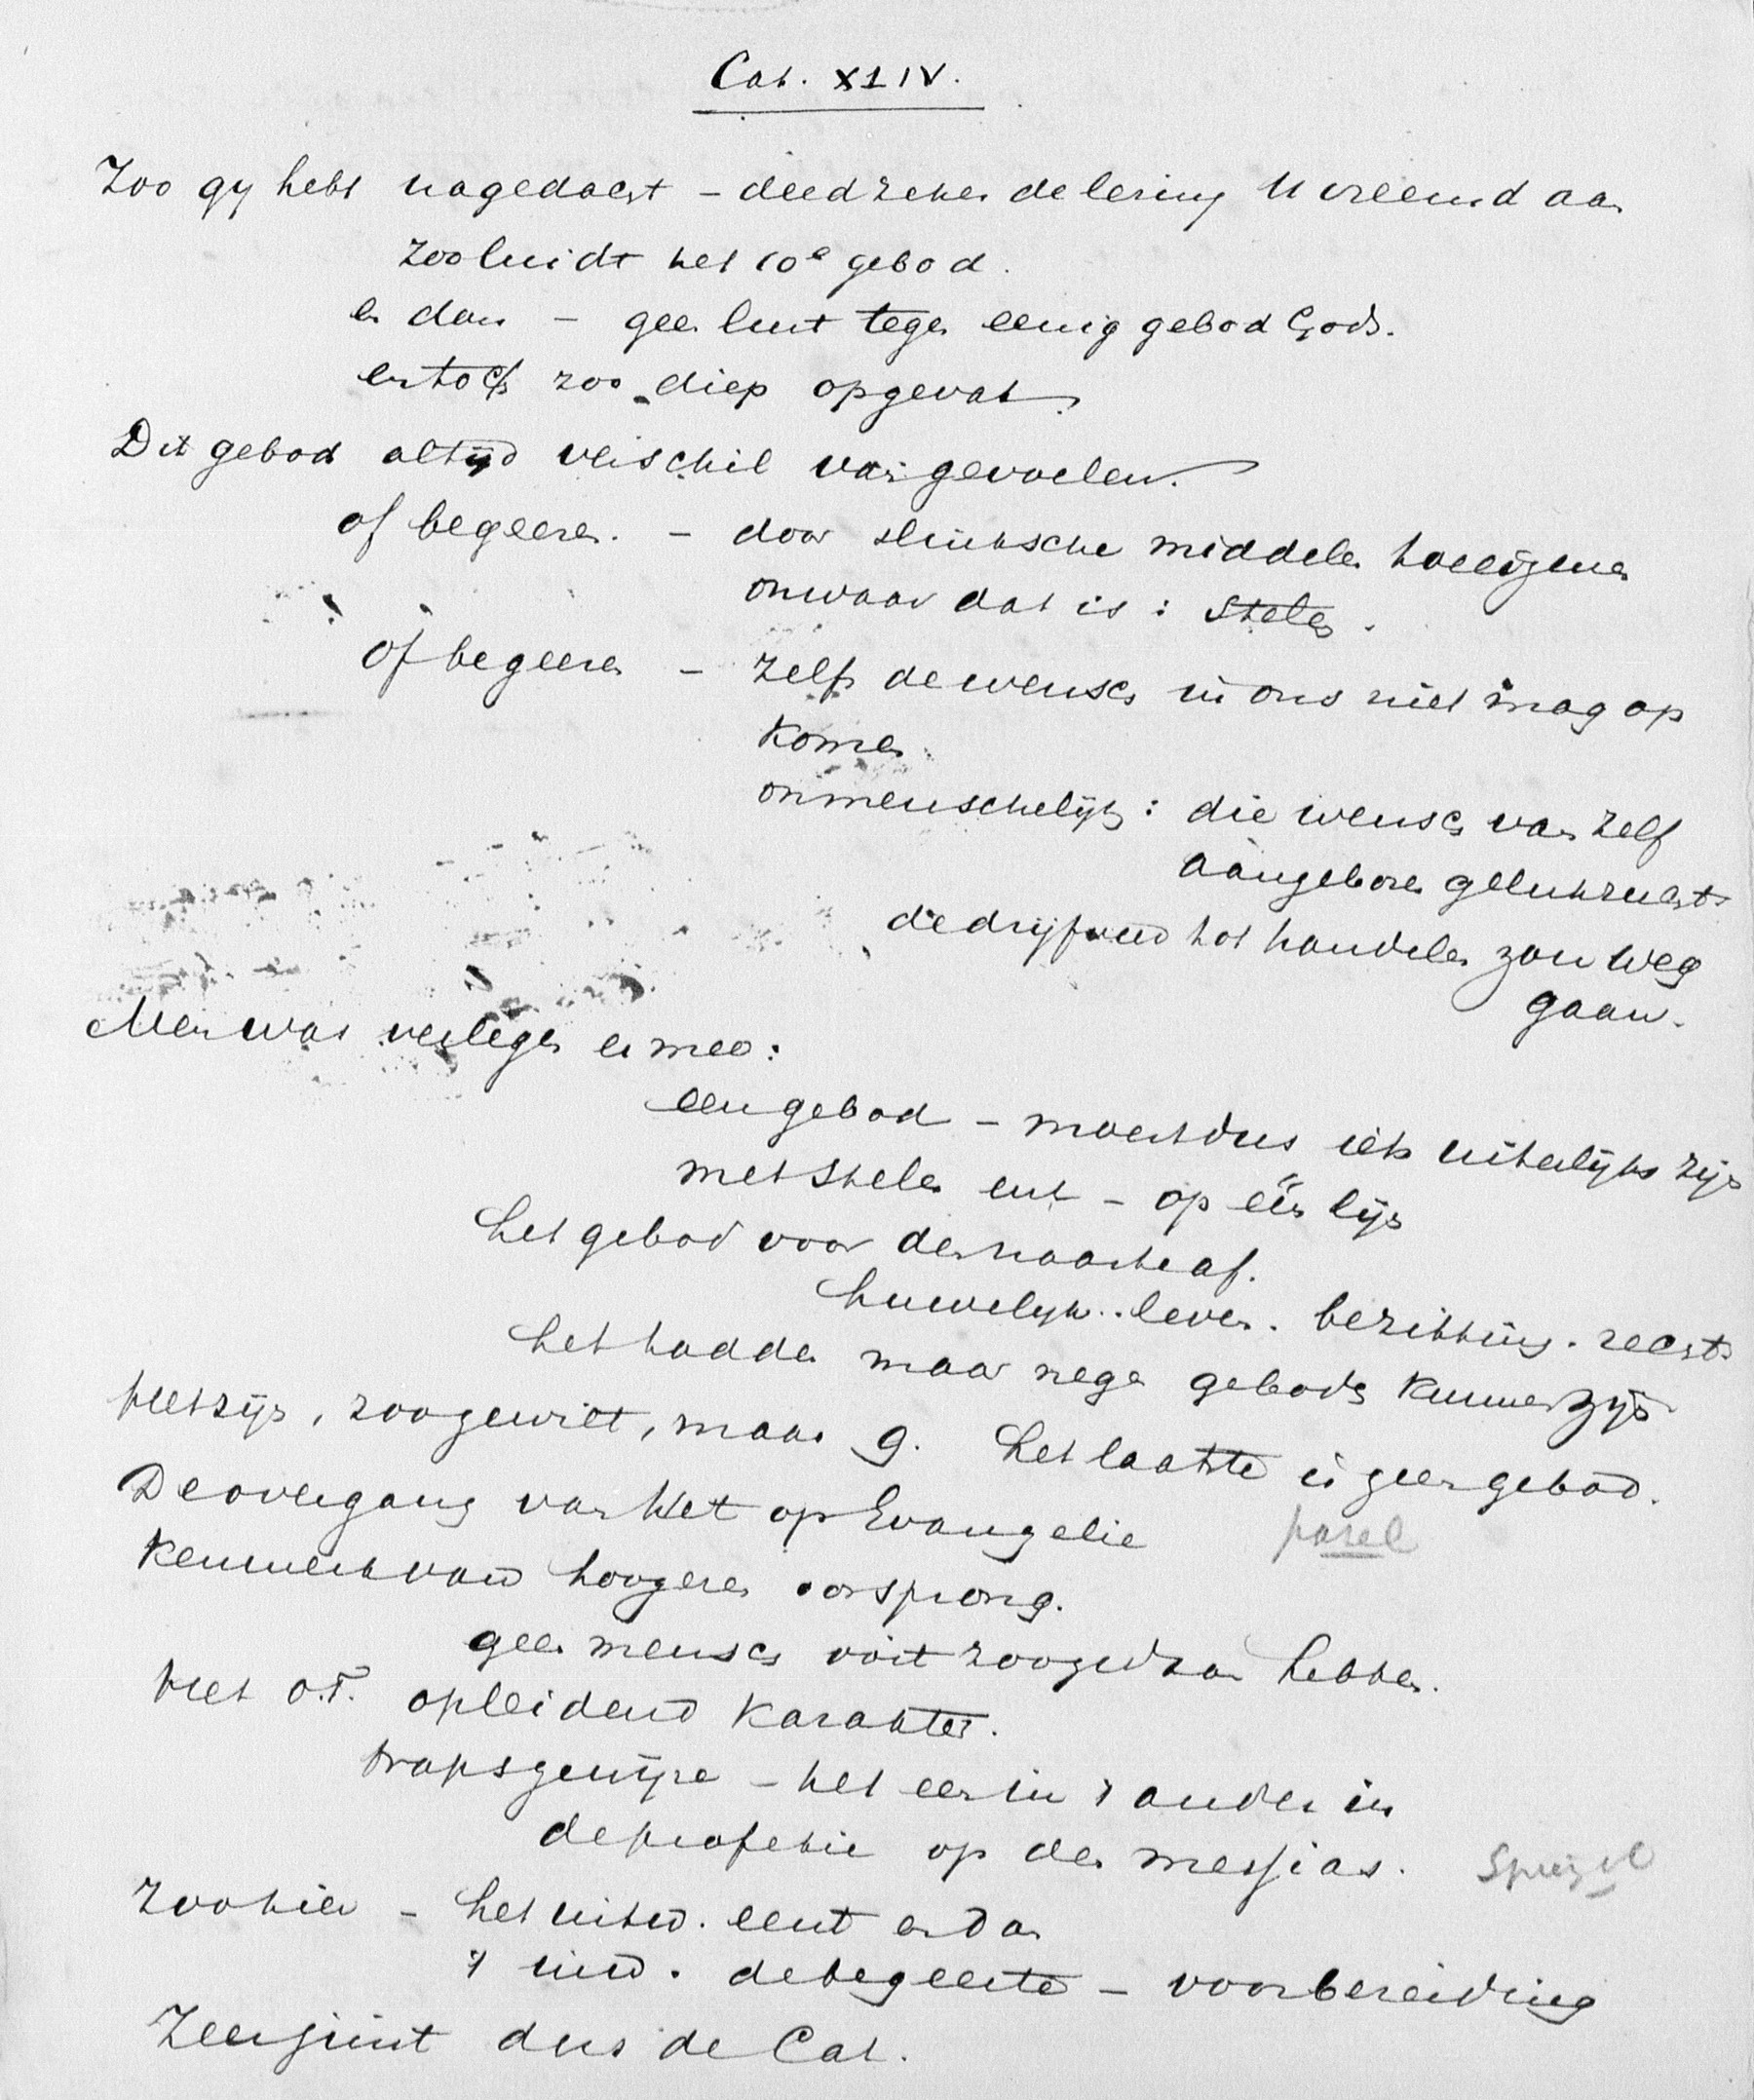 Cat. XLIV.
Zoo gy hebt nagedacht – deed zeker de lering U vreemd aan
zoo luidt het 10e gebod.
en dan – geen lust tegen eenig gebod Gods.
en toch zoo diep opgevat.
Dit gebod altijd verschil van gevoelen.
of begeeren. – door slinksche middelen toeeigenen
onwaar dat is: stelen.
of begeeren – zelfs de wensch in ons niet mag op
komen.
onmenschelijk: die wensch van zelf
aangeboren gelukzucht
de drijfveer tot handelen zou weg
gaan.
Men was verlegen er mee:
een gebod – moest dus iets uiterlijks zijn
met stelen enz – op één lijn
het gebod voor den naaste af.
huwelijk.. leven. bezitting. recht
het hadden maar negen geboden kunnen zijn
Het zijn, zoo ge wilt, maar 9. het laatste is geen gebod.
De overgang van Wet op Evangelie
parel
Kenmerk van hoogeren oorsprong.
geen mensch ooit zoo gedaan hebben.
Het O.T. opleidend karakter.
trapsgewijze – het een in 't ander in
de profetie op den Messias.
Spiegel
Zoo hier – het uitw. eerst en dan
't inw. de begeerte – voorbereiding
Zeer juist dus de Cat.